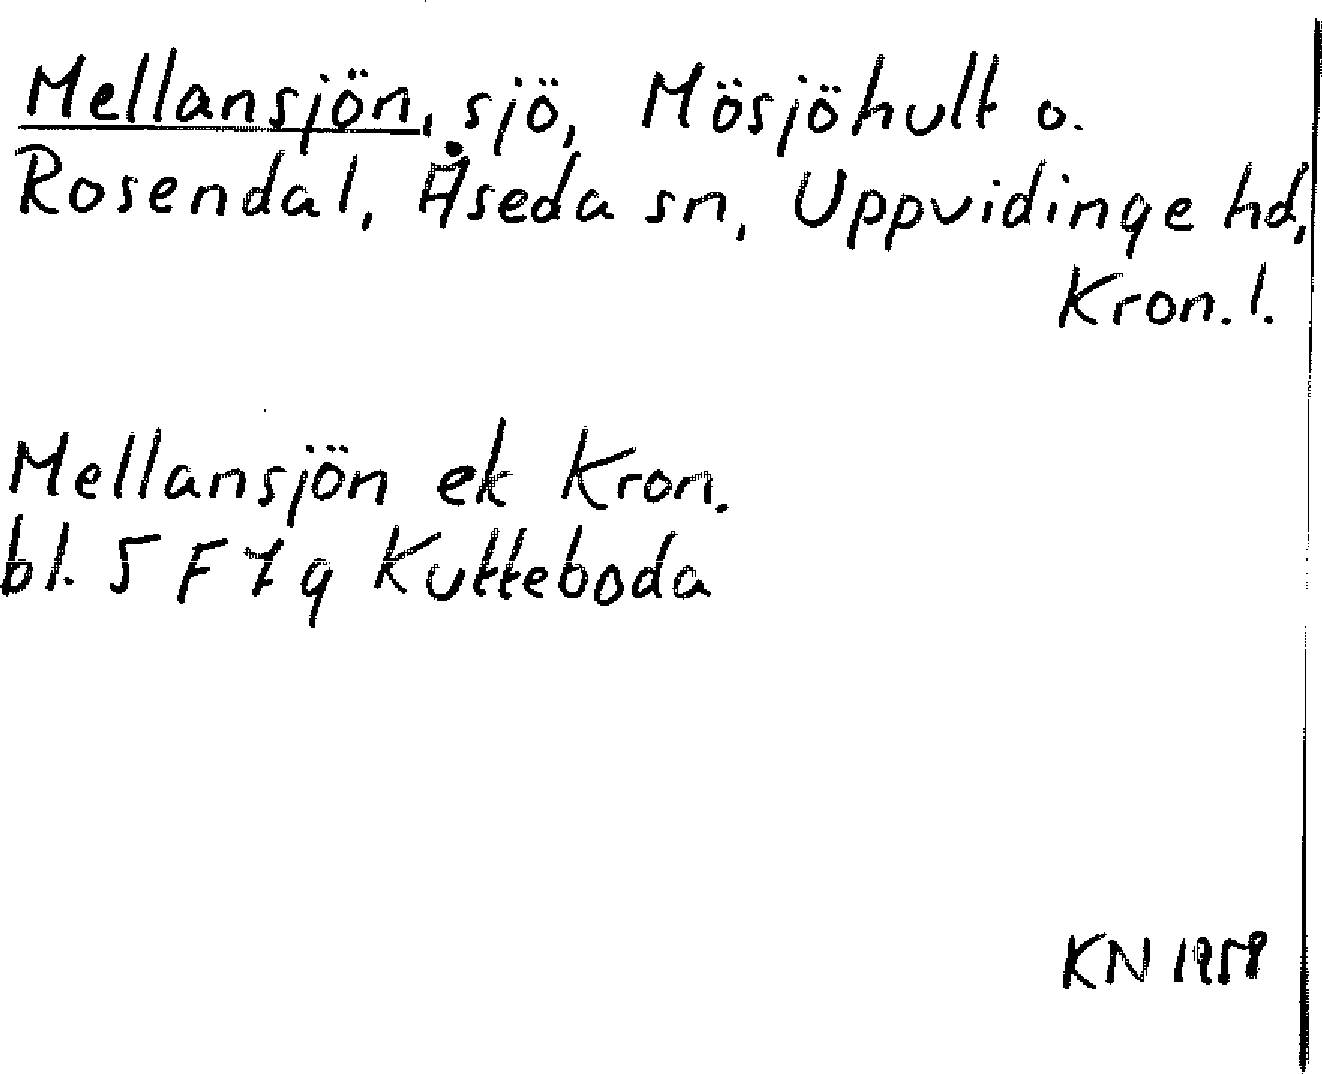 Mellansjön, sjö, Mösjöhult o.
Rosendal, Åseda sn, Uppvidinge hd,
Kron. l.
Mellansjön ek Kron.
bl. 5 F 7 g Kutteboda
KN 1959